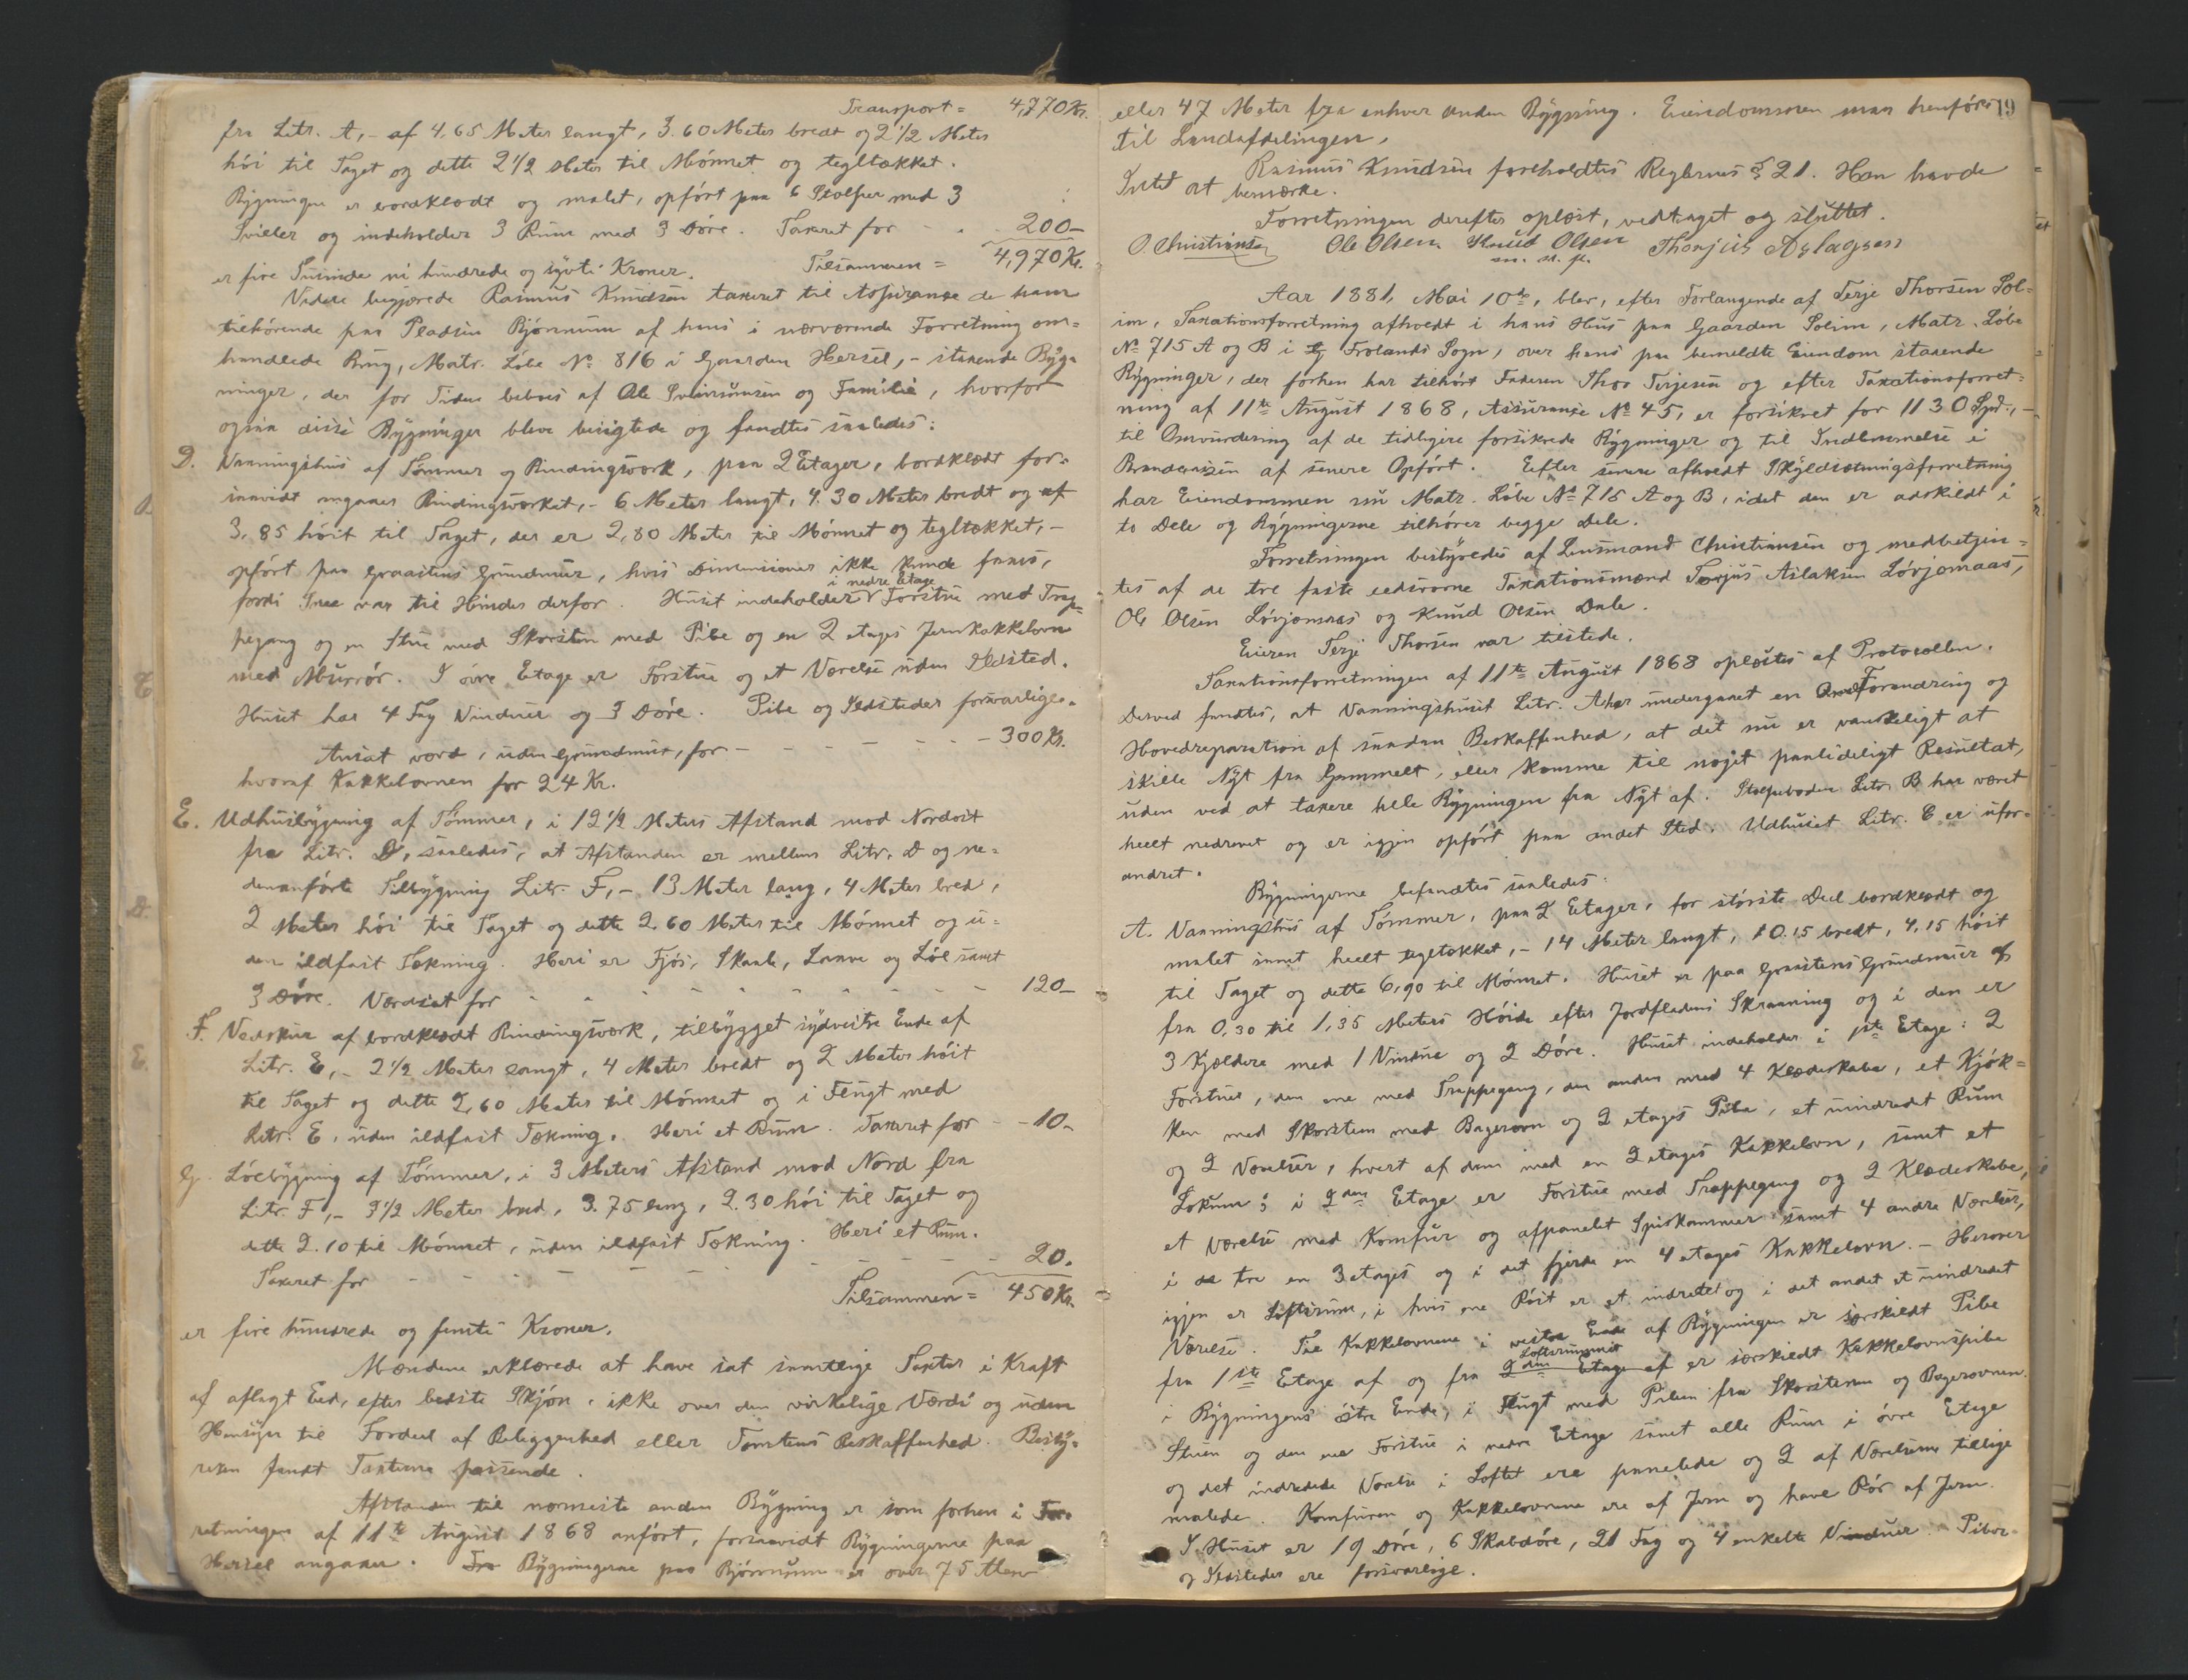 Transport = 4,770 Kr.
fra Litr. A, - af 4,65 Meter langt, 3.60 Meter bredt og 2 1/2 Meter
höi til Taget og dette 2 1/2 Meter til Mönnet og tegltækket.
Bygningen er bordklædt og malet, opfört paa 6 Stolper med 3
Sviller og indeholder 3 Rum med 3 Döre. Taxeret for - - 200 -
er fire Tusinde ni hundrede og sytti Kroner. Tilsammen = 4,970 Kr.
Videre begjærede Rasmus Knudsen taxeret til Assurance de ham
tilhörende paa Pladsen Björnmum af hans i nærværende Forretning om=
handlede Brug, Matr. Löbe No 816 i Gaarden Hersel, - staaende Byg=
ninger, der for Tiden beboes af Ole Salvesensen og Familie, hvorfor
ogsaa disse Bygninger bleve besigtede og fandtes saaledes:
D. Vaaningshus af Tömmer og Bindingsværk, paa 2 Etager, bordklædt for=
saavidt angaaer Bindingsværket, - 6 Meter langt, 4.30 Meter bredt og af
3,85 höit til Taget, der er 2,80 Meter til Mönnet og tegltækket, -
opfört paa Graastens Grundmur, hvis Dimensioner ikke kunde faaes,
fordi Snee var til Hinder derfor. Huset indeholder i nedre Etage Forstue med Trap=
pegang og en Stue med Skorsten med Pibe og en 2 etages Jernkakkelovn
med Murrör. I övre Etage er Forstue og et Værelse uden Ildsted.
Huset har 4 Fag Vinduer og 3 Döre. Pibe og Ildsteder forsvarlige.
Ansat værd, uden Grundmur, for - - - - - - 300 Kr.
hvoraf Kakkelovnen for 24 Kr.
E. Udhusbygning af Tömmer, i 12 1/2 Meters Afstand mod Nordost
fra Litr. D, saaledes, at Afstanden er mellem Litr. D og ne=
denanförte Tilbygning Litr. F, - 13 Meter lang, 4 Meter bred,
2 Meter höi til Taget og dette 2.60 Meter til Mönnet og u=
den ildfast Tækning. Heri er Fjös, Skaale, Laave og Löe samt
3 Döre. Værdsat for - - - - - - - - 120 -
F. Vedskur af bordklædt Bindingsværk, tilbygget sydvestre Ende af
Litr. E, - 2 1/2 Meter langt, 4 Meter bredt og 2 Meter höit
til Taget og dette 2,60 Meter til Mönnet og i Flugt med
Litr. E, uden ildfast Tækning. Heri et Rum. Taxeret for - - 10 -
G. Löebygning af Tömmer, i 3 Meters Afstand mod Nord fra
Litr. F, - 3 1/2 Meter bred, 3.75 lang, 2.30 höi til Taget og
dette 2.10 til Mönnet, uden ildfast Tækning. Heri et Rum.
Taxeret for - - - - - - - - 20.
Tilsammen = 450 Kr.
er fire hundrede og femti Kroner.
Mændene erklærede at have sat samtlige Taxter i Kraft
af aflagt Eed, efter bedste Skjön, ikke over den virkelige Værdi og uden
Hensyn til Fordeel af Beliggenhed eller Tomtens Beskaffenhed. Besty=
reren fandt Taxterne passende.
Afstanden til nærmeste anden Bygning er som forhen i For=
retningen af 11te August 1868 anfört, forsaavidt Bygningerne paa
Hersel angaaer. Fra Bygningerne paa Björnmum er over 75 Alen
19
eller 47 Meter fra enhver anden Bygning. Eiendommen maa henföres
til Landafdelingen.
Rasmus Knudsen foreholdtes Reglernes § 21. Han havde
Intet at bemærke.
Forretningen derefter oplæst, vedtaget og sluttet.
O. Christiansen Ole Olsen Knud Olsen Thorjus Aslagsen
m. p. p.
Aar 1881, Mai 10de, blev, efter Forlangende af Terje Thorsen Sol=
im, Taxationsforretning afholdt i hans Hus paa Gaarden Solim, Matr. Löbe
No 715 A og B i Frolands Sogn, over hans paa bemeldte Eiendom staaende
Bygninger, der forhen har tilhört Faderen Thor Terjesen og efter Taxationsforret=
ning af 11te August 1868, Assurance No 45, er forsikret for 1130 Spd., -
til Omvurdering af de tidligere forsikrede Bygninger og til Indlemmelse i
Brandcassen af senere Opfört. Efter senere afholdt Skyldsætningsforretning
har Eiendommen nu Matr. Löbe No 715 A og B, idet den er adskildt i
to Dele og Bygningerne tilhörer begge Dele.
Forretningen bestyredes af Lensmand Christiansen og medbetjen=
tes af de tre faste eedsvorne Taxationsmænd Torjus Aslaksen Lövjomaas,
Ole Olsen Lövjomaas og Knud Olsen Dale.
Eieren Terje Thorsen var tilstede.
Taxationsforretningen af 11te August 1868 oplæstes af Protocollen.
Derved fandtes, at Vaaningshuset Litr. A har undergaaet en Forandring og
Hovedreparation af saadan Beskaffenhed, at det nu er vanskeligt at
skille Nyt fra Gammelt, eller komme til noget paalideligt Resultat,
uden ved at taxere hele Bygningen fra Nyt af. Stolpeboden Litr. B har været
heelt nedrevet og er igjen opfört paa andet Sted. Udhuset Litr. C er ufor=
andret.
Bygningerne befandtes saaledes:
A. Vaaningshus af Tömmer, paa 2 Etager, for störste Deel bordklædt og
malet samt heelt tegltækket, - 14 Meter langt, 10.15 bredt, 4,15 höit
til Taget og dette 6,90 til Mönnet. Huset er paa Graastens Grundmur af
fra 0,30 til 1,35 Meters Höide efter Jordfladens Skraaning og i den er
3 Kjældere med 1 Vindue og 2 Döre. Huset indeholder i 1ste Etage: 2
Forstuer, den ene med Trappegang, den anden med 4 Klædeskabe, et Kjök=
ken med Skorsten med Bagerovn og 2 etages Pibe, et uindredet Rum
og 2 Værelser, hvert af dem med en 2 etages Kakkelovn, samt et
Lokum; i 2den Etage er Forstue med Trappegang og 2 Klædeskabe,
et Værelse med Komfur og afpanelet Spiskammer samt 4 andre Værelser,
i de tre en 3 etages og i det fjerde en 4 etages Kakkelovn. - Herover
igjen er Loftsrum, i hvis ene Röst er et indredet og i det andet et uindredet
Værelse. Til Kakkelovnene i vestre Ende af Bygningen er særskildt Pibe
fra 1ste Etage af og fra Loftsrummet 2den Etage af er særskildt Kakkelovnspibe
i Bygningens östre Ende, i Flugt med Piben fra Skorstenen og Bagerovnen.
Stuen og den ene Forstue i nedre Etage samt alle Rum i övre Etage
og det indredede Værelse i Loftet ere panelede og 2 af Værelserne tillige
malede. Komfuren og Kakkelovnene ere af Jern og have Rör af Jern.
I Huset er 19 Döre, 6 Skabdöre, 21 Fag og 4 enkelte Vinduer. Piber
og Ildsteder ere forsvarlige.